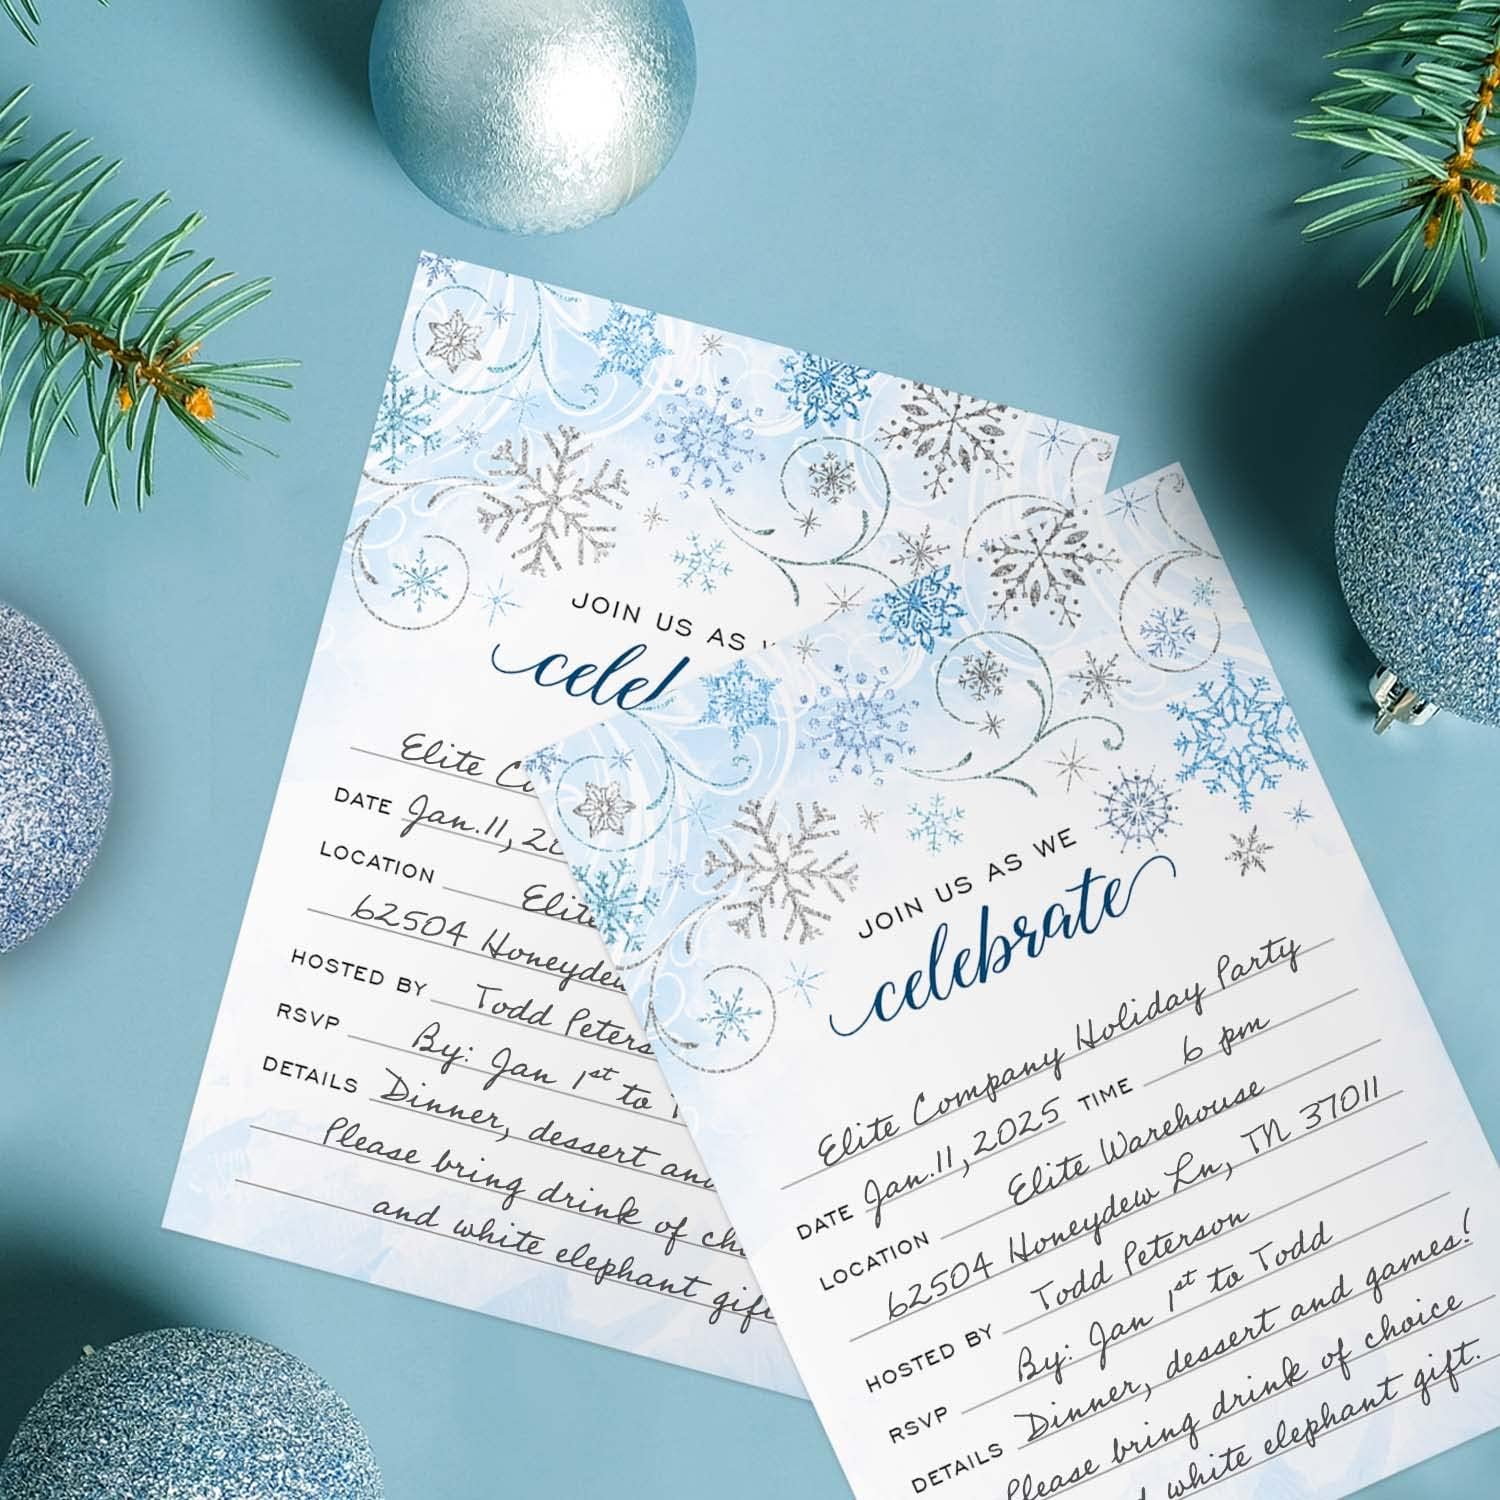 JOIN US AS W
cele
Elite Co
DATE Jan.11, 20
LOCATION Elite
62504 Honeydew
HOSTED BY Todd Peters
RSVP By: Jan 1st to
DETAILS Dinner, dessert and
Please bring drink of ch
and white elephant gif
JOIN US AS WE
celebrate
Elite Company Holiday Party
DATE Jan.11, 2025 TIME 6 pm
LOCATION Elite Warehouse
62504 Honeydew Ln, TN 37011
HOSTED BY Todd Peterson
RSVP By: Jan 1st to Todd
DETAILS Dinner, dessert and games!
Please bring drink of choice
white elephant gift.